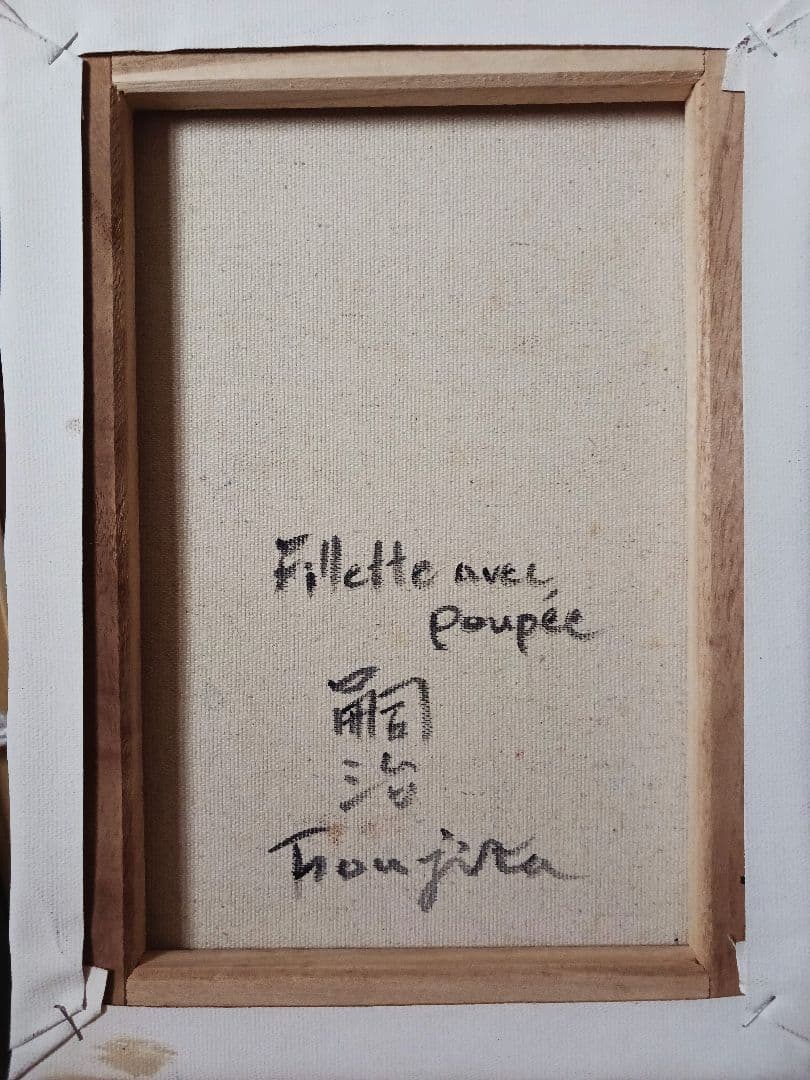 Fillette avec
poupée
嗣
治
Foujita